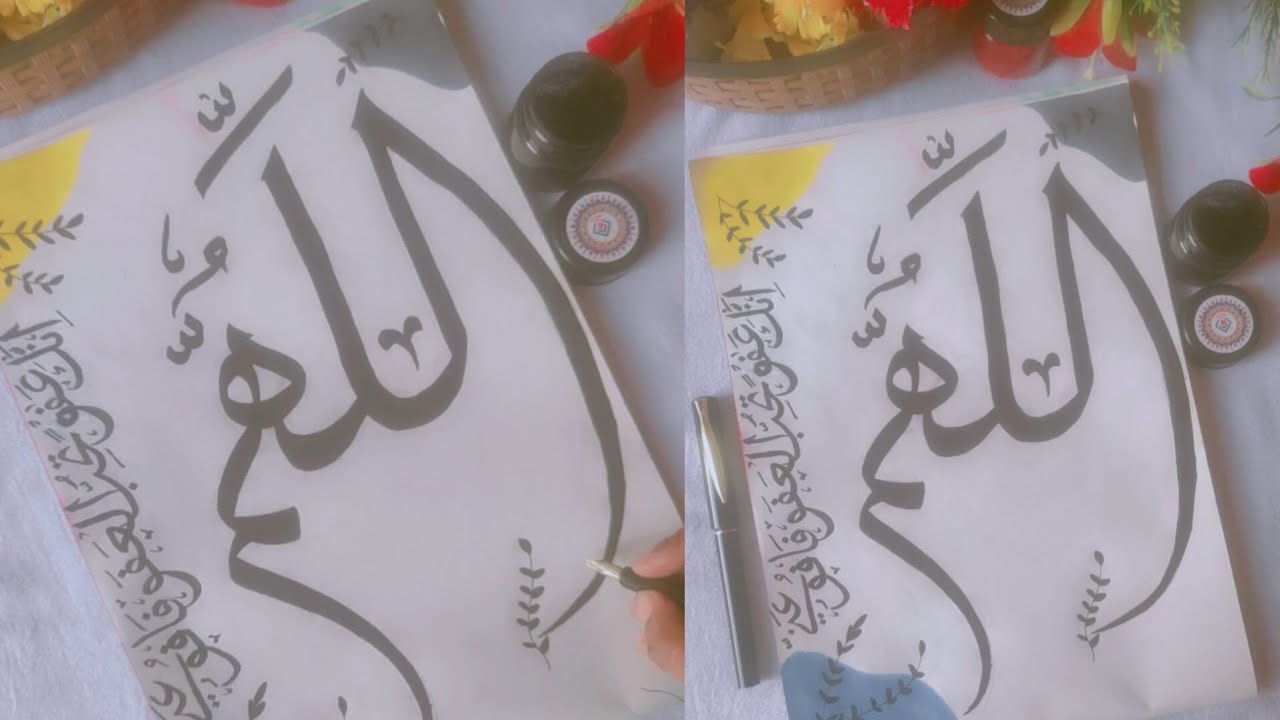 اللّٰهُمَّ
اِنَّكَ عَفُوٌّ تُحِبُّ الْعَفْوَ فَاعْفُ عَنِّي
اللّٰهُمَّ
اِنَّكَ عَفُوٌّ تُحِبُّ الْعَفْوَ فَاعْفُ عَنِّي